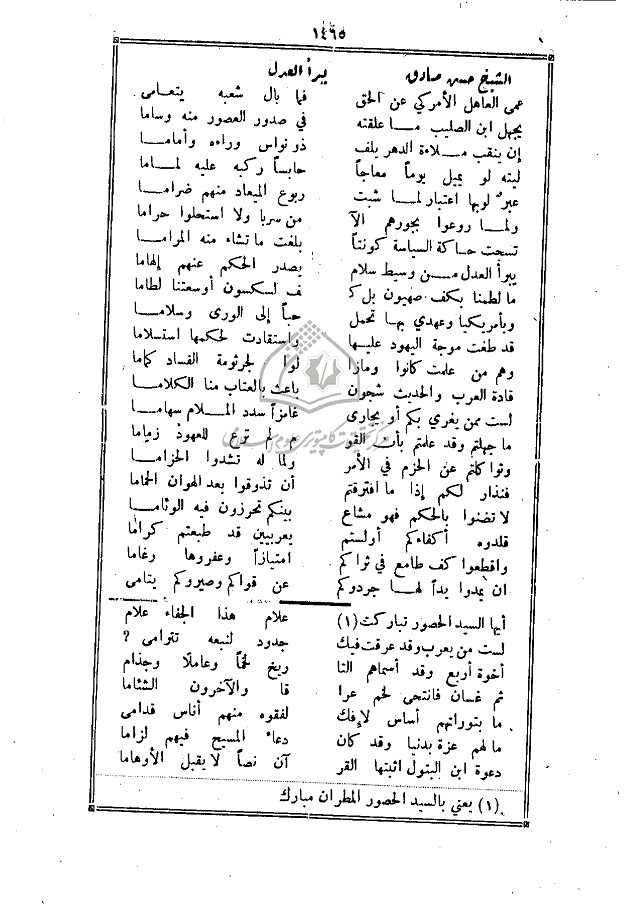 ١٤٦٥
الشيخ حسن صادق يبرأ العدل
عمي العاهل الأمركي عن الحق فما بال شعبه يتعامى
يجهل ابن الصليب مـــا علقته في صدور العصور منه وساما
إن ينقب مــلاءة الدهر يلف ذو نواس وراءه وأمامــا
ليته لو يميل يوماً معاجاً حابساً ركبه عليه لمــاما
عبر لوبها اعتبار لمــا شبت ربوع الميعاد منهم ضرامــا
ولمــا روعوا بجورهم الآ من سربا ولا استحلوا حراما
نسجت حاكة السياسة كونتاً بلغت ما تشاء منه المرامــا
يبرأ العدل مــن وسيط سلام يصدر الحكم عنهم إلهاما
ما لطمنا بكف صهيون بل ك ف لسكسون أوسعتنا لطاما
وبأمريكيا وعهدي بهــا تحمل حباً إلى الورى وسلامــا
قد طغت موجة اليهود عليهــا واستقادت لحكمها استسلاما
وهم من علمت كانوا ومازا لوا لجرثومة الفساد كماما
قادة العرب والحديث شجون باعث بالعتاب منا الكلامــا
لست ممن يغري بكم أو يجارى غامزاً سدد المــلام سهامــا
ما جهلتم وقد علمتم بأن القو م لم ترع للعهود زماما
وتواكلتم عن الحزم في الأمر ولما له تشدوا الحزامــا
فنذار لكم إذا ما افترقتم أن تذوقوا بعد الهوان الحماما
لا تضنوا بالحكم فهو مشاع بينكم تحرزون فيه الوئامــا
قلدوه أكفاءكم أولستم يعربيين قد طبعتم كراما
واقطعوا كف طامع في ثراكم امتيازاً وعفروها رغاما
ان يمدوا يداً لهــا جردوكم عن قواكم وصيروكم يتامى
أيها السيد الحصور تباركت (١) علام هذا الجفاء علام
لست من يعرب وقد عرقت فيك جدود لنبعه تترامى ؟
أخوة أربع وقد أسماهم النا ريخ لخماً وعاملا وجذام
ثم غسان فانتحى لخم عرا قا والآخرون الشئاما
ما بتوراتهم أساس لإفك لفقوه منهم أناس قدامى
ما لهم عزة بدنيا وقد كان دعاء المسيح فيهم لزاما
دعوة ابن البتول اثبتها القر آن نصاً لا يقبل الأوهاما
(١) يعني بالسيد الحصور المطران مبارك